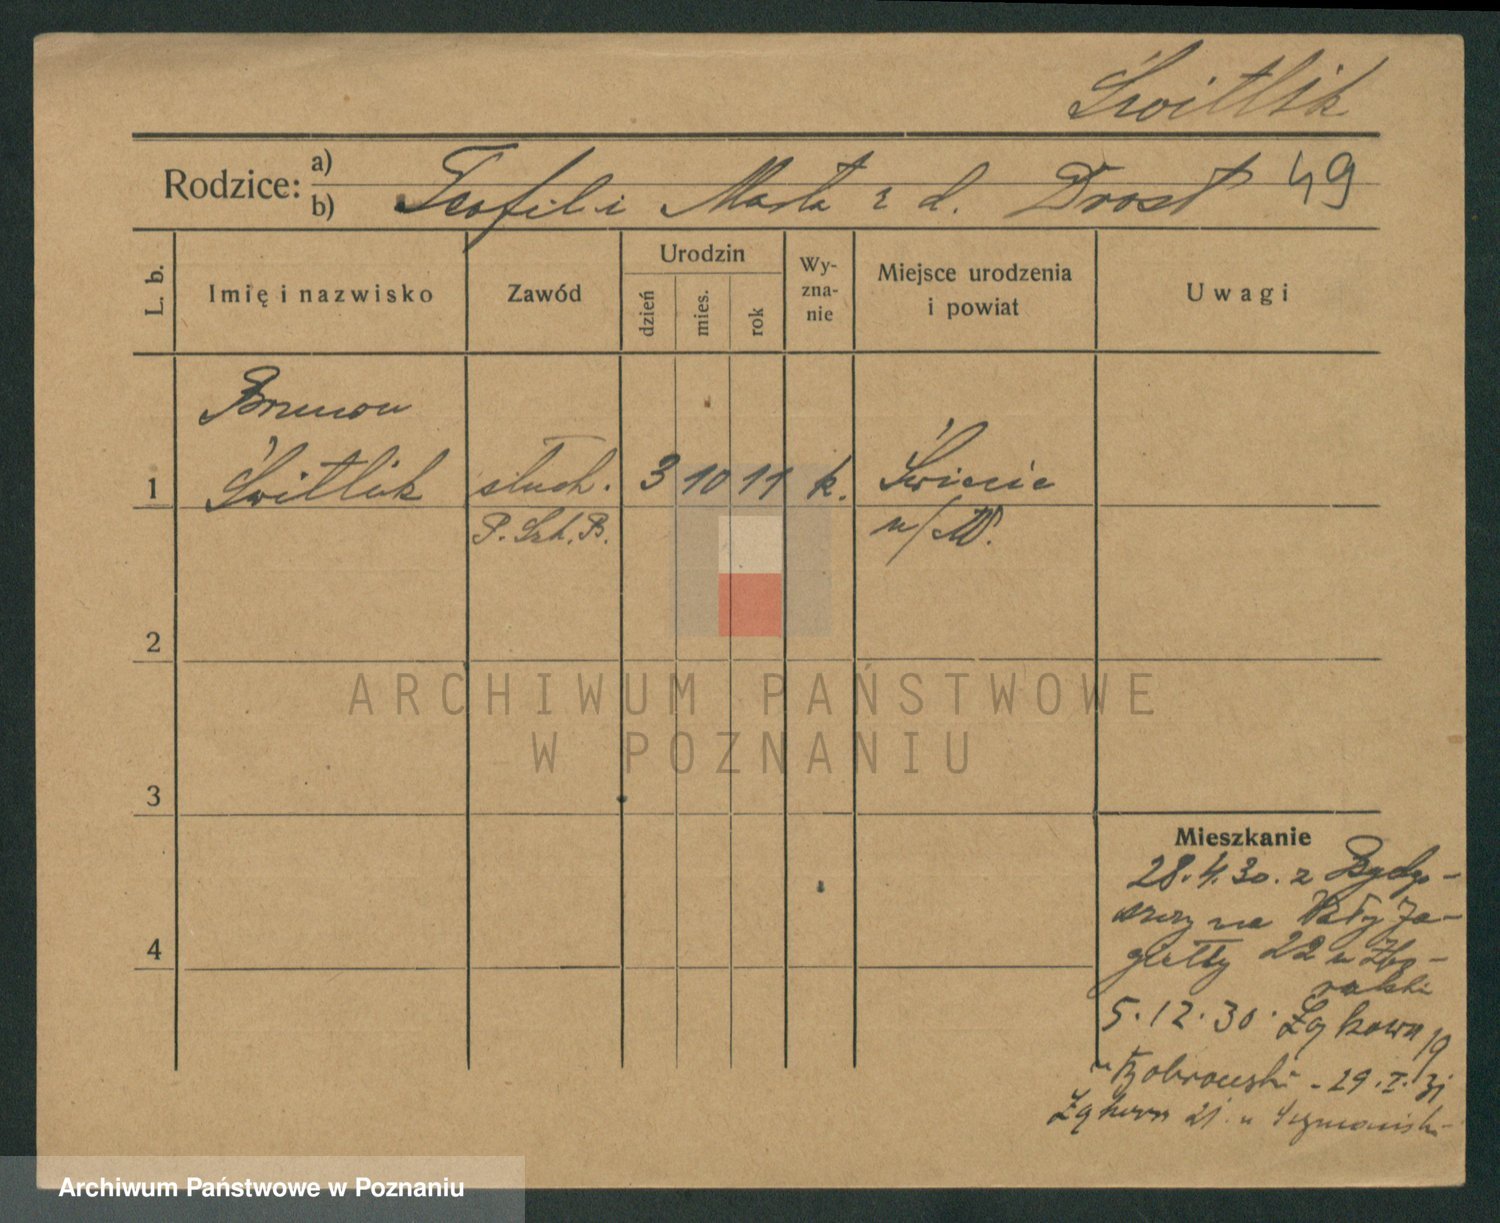 Świtlik
Rodzice: a)
b) Teofil i Marta z d. Drost 49
L. b.
Imię i nazwisko
Zawód
Urodzin
dzień
mies.
rok
Wy-
zna-
nie
Miejsce urodzenia
i powiat
Uwagi
Brunon
1 Świtlik słuch. 3 10 11 k. Świecie
P. Szk. B. n/W.
2
3
4
Mieszkanie
28.4.30. z Bydgo-
szczy na Wały Ja-
giełły 22 u
5.12.30. Łąkowa 19
u Bobrowski - 29.I.31
Łąkowa 21. u Szymański
ARCHIWUM PAŃSTWOWE
W POZNANIU
Archiwum Państwowe w Poznaniu